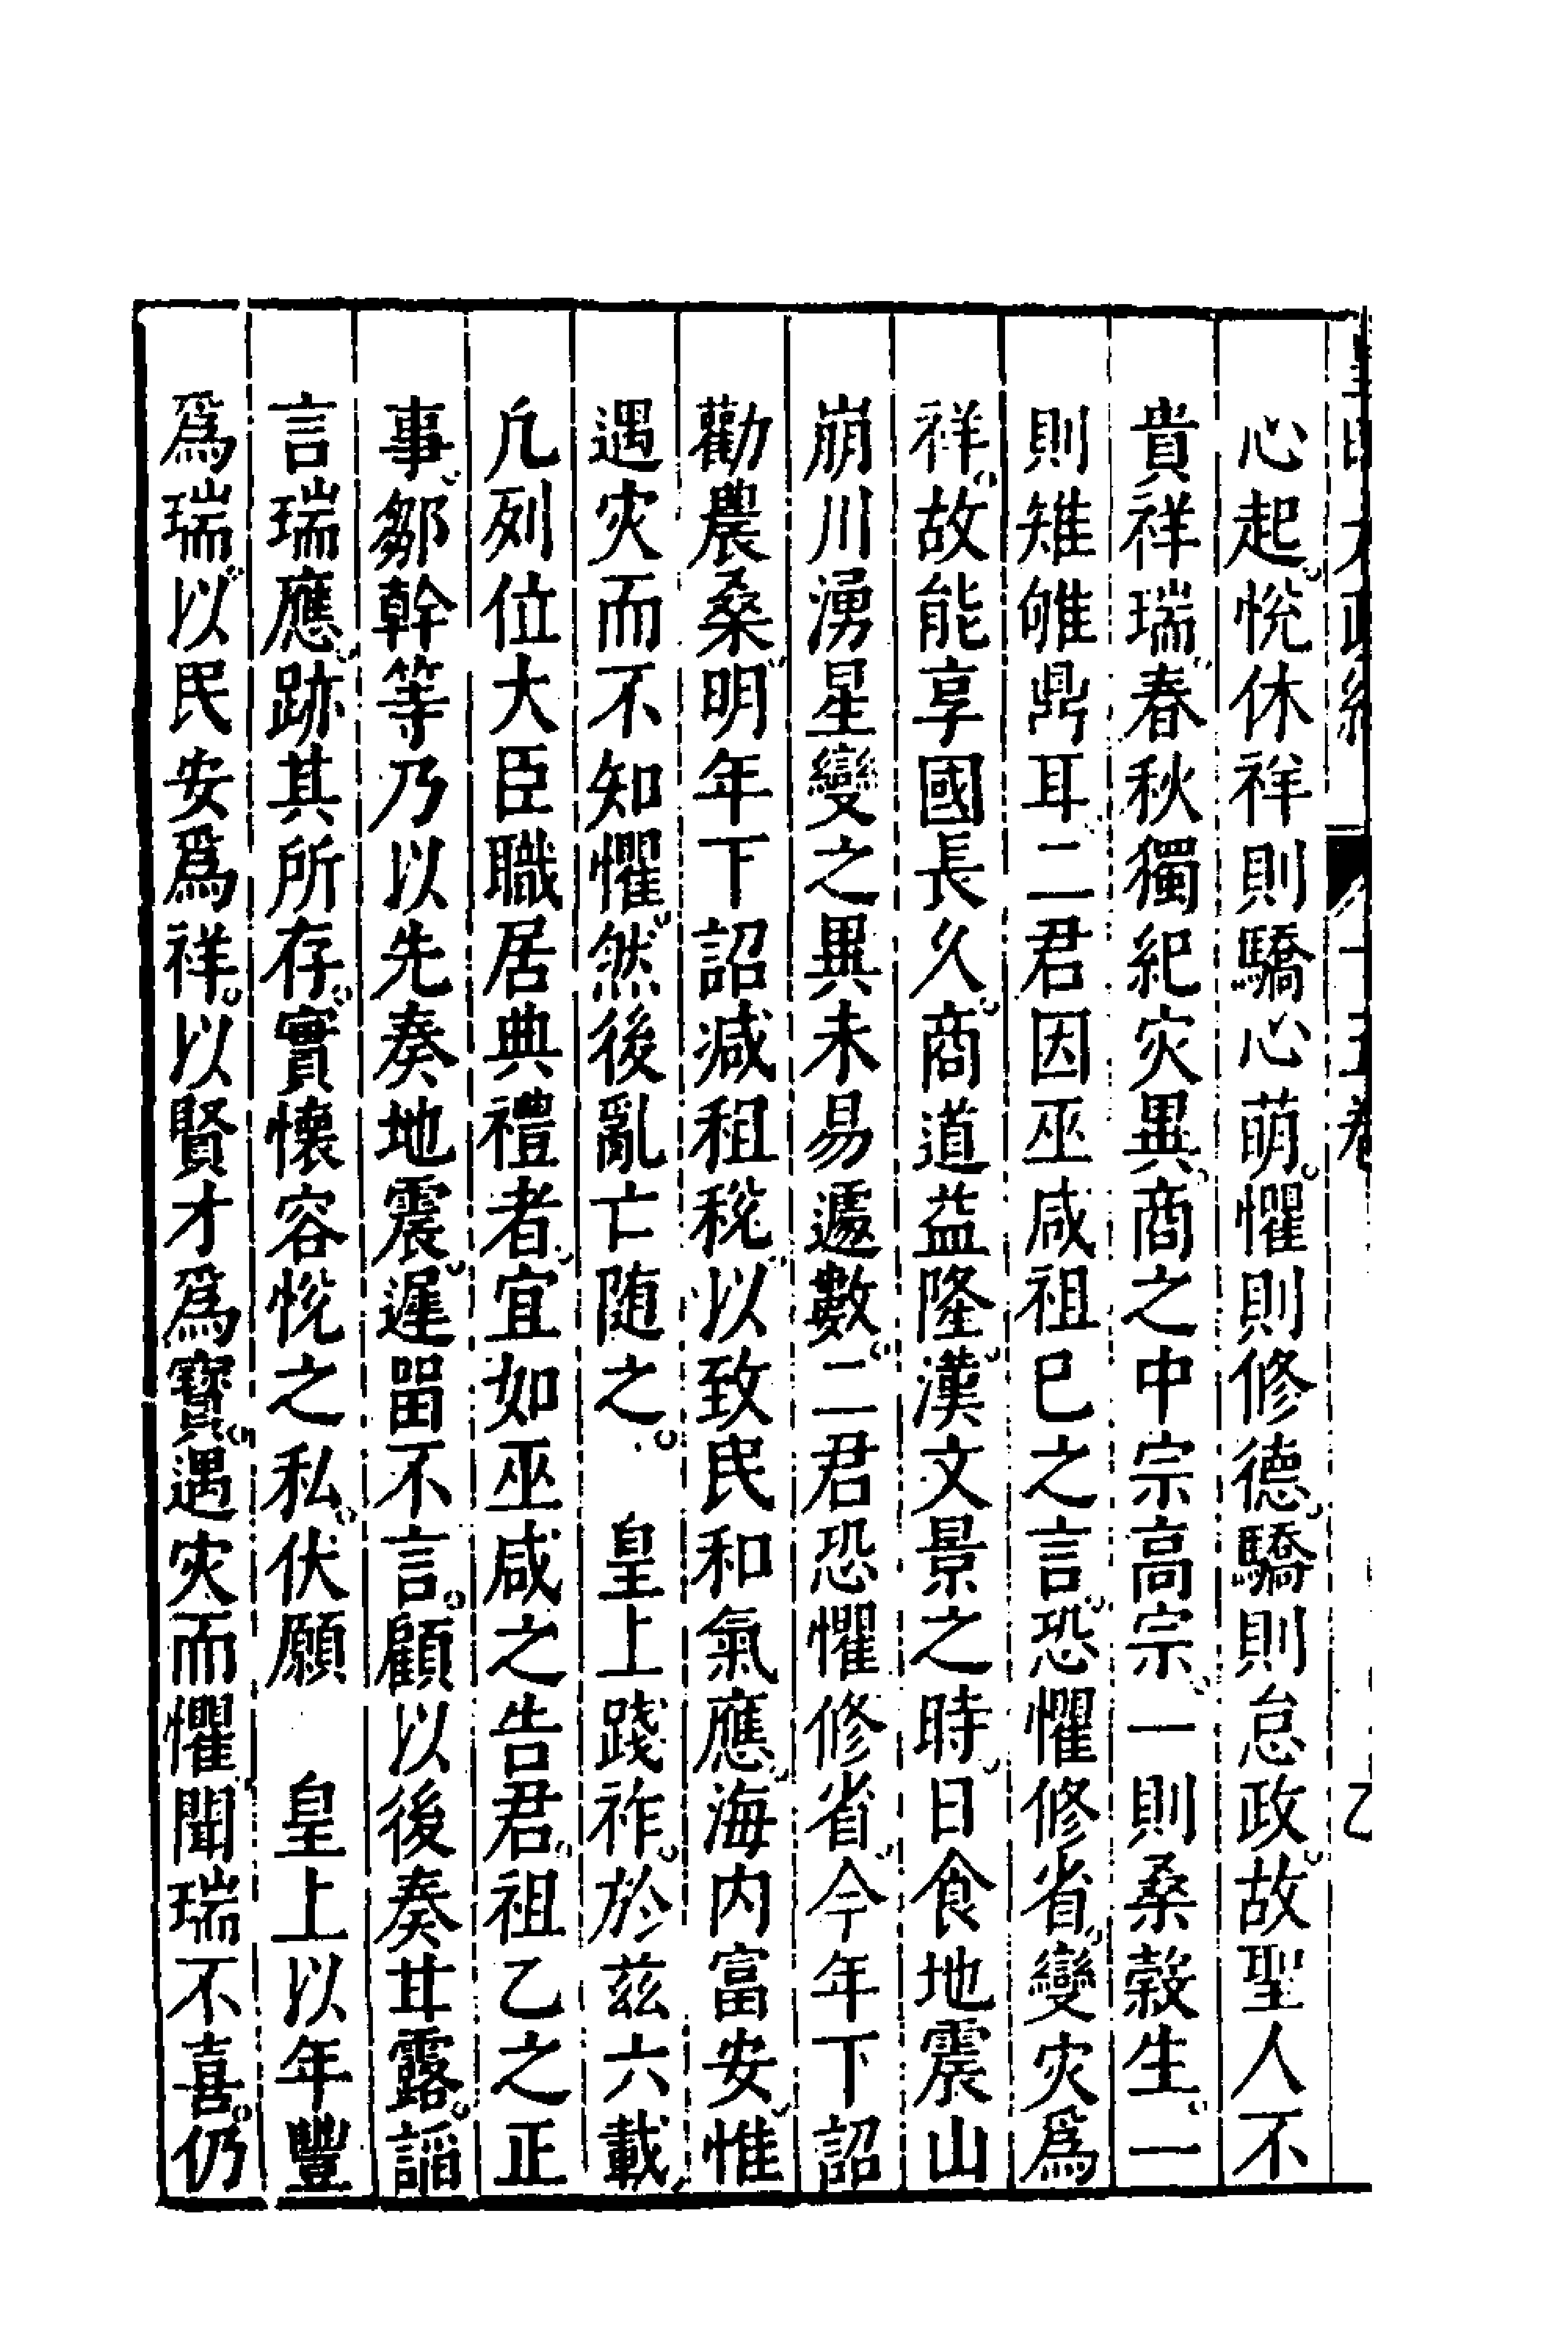 心起悅休祥則驕心萌懼則修德驕則怠政故聖人不
貴祥瑞春秋獨紀灾異商之中宗高宗一則桑穀生一
則雉雊鼎耳二君因巫咸祖巳之言恐懼修省變灾爲
祥故能享國長久商道益隆漢文景之時日食地震山
崩川湧星變之異未易遽數二君恐懼修省今年下詔
勸農桑明年下詔减租稅以致民和氣應海内富安惟
遇灾而不知懼然後亂亡随之　皇上踐祚於兹六載
凢列位大臣職居典禮者宜如巫咸之告君祖乙之正
事鄒幹等乃以先奏地震遲畱不言顧以後奏甘露謟
言瑞應跡其所存實懷容悅之私伏願　皇上以年豐
爲瑞以民安爲祥以賢才爲寶遇灾而懼聞瑞不喜仍